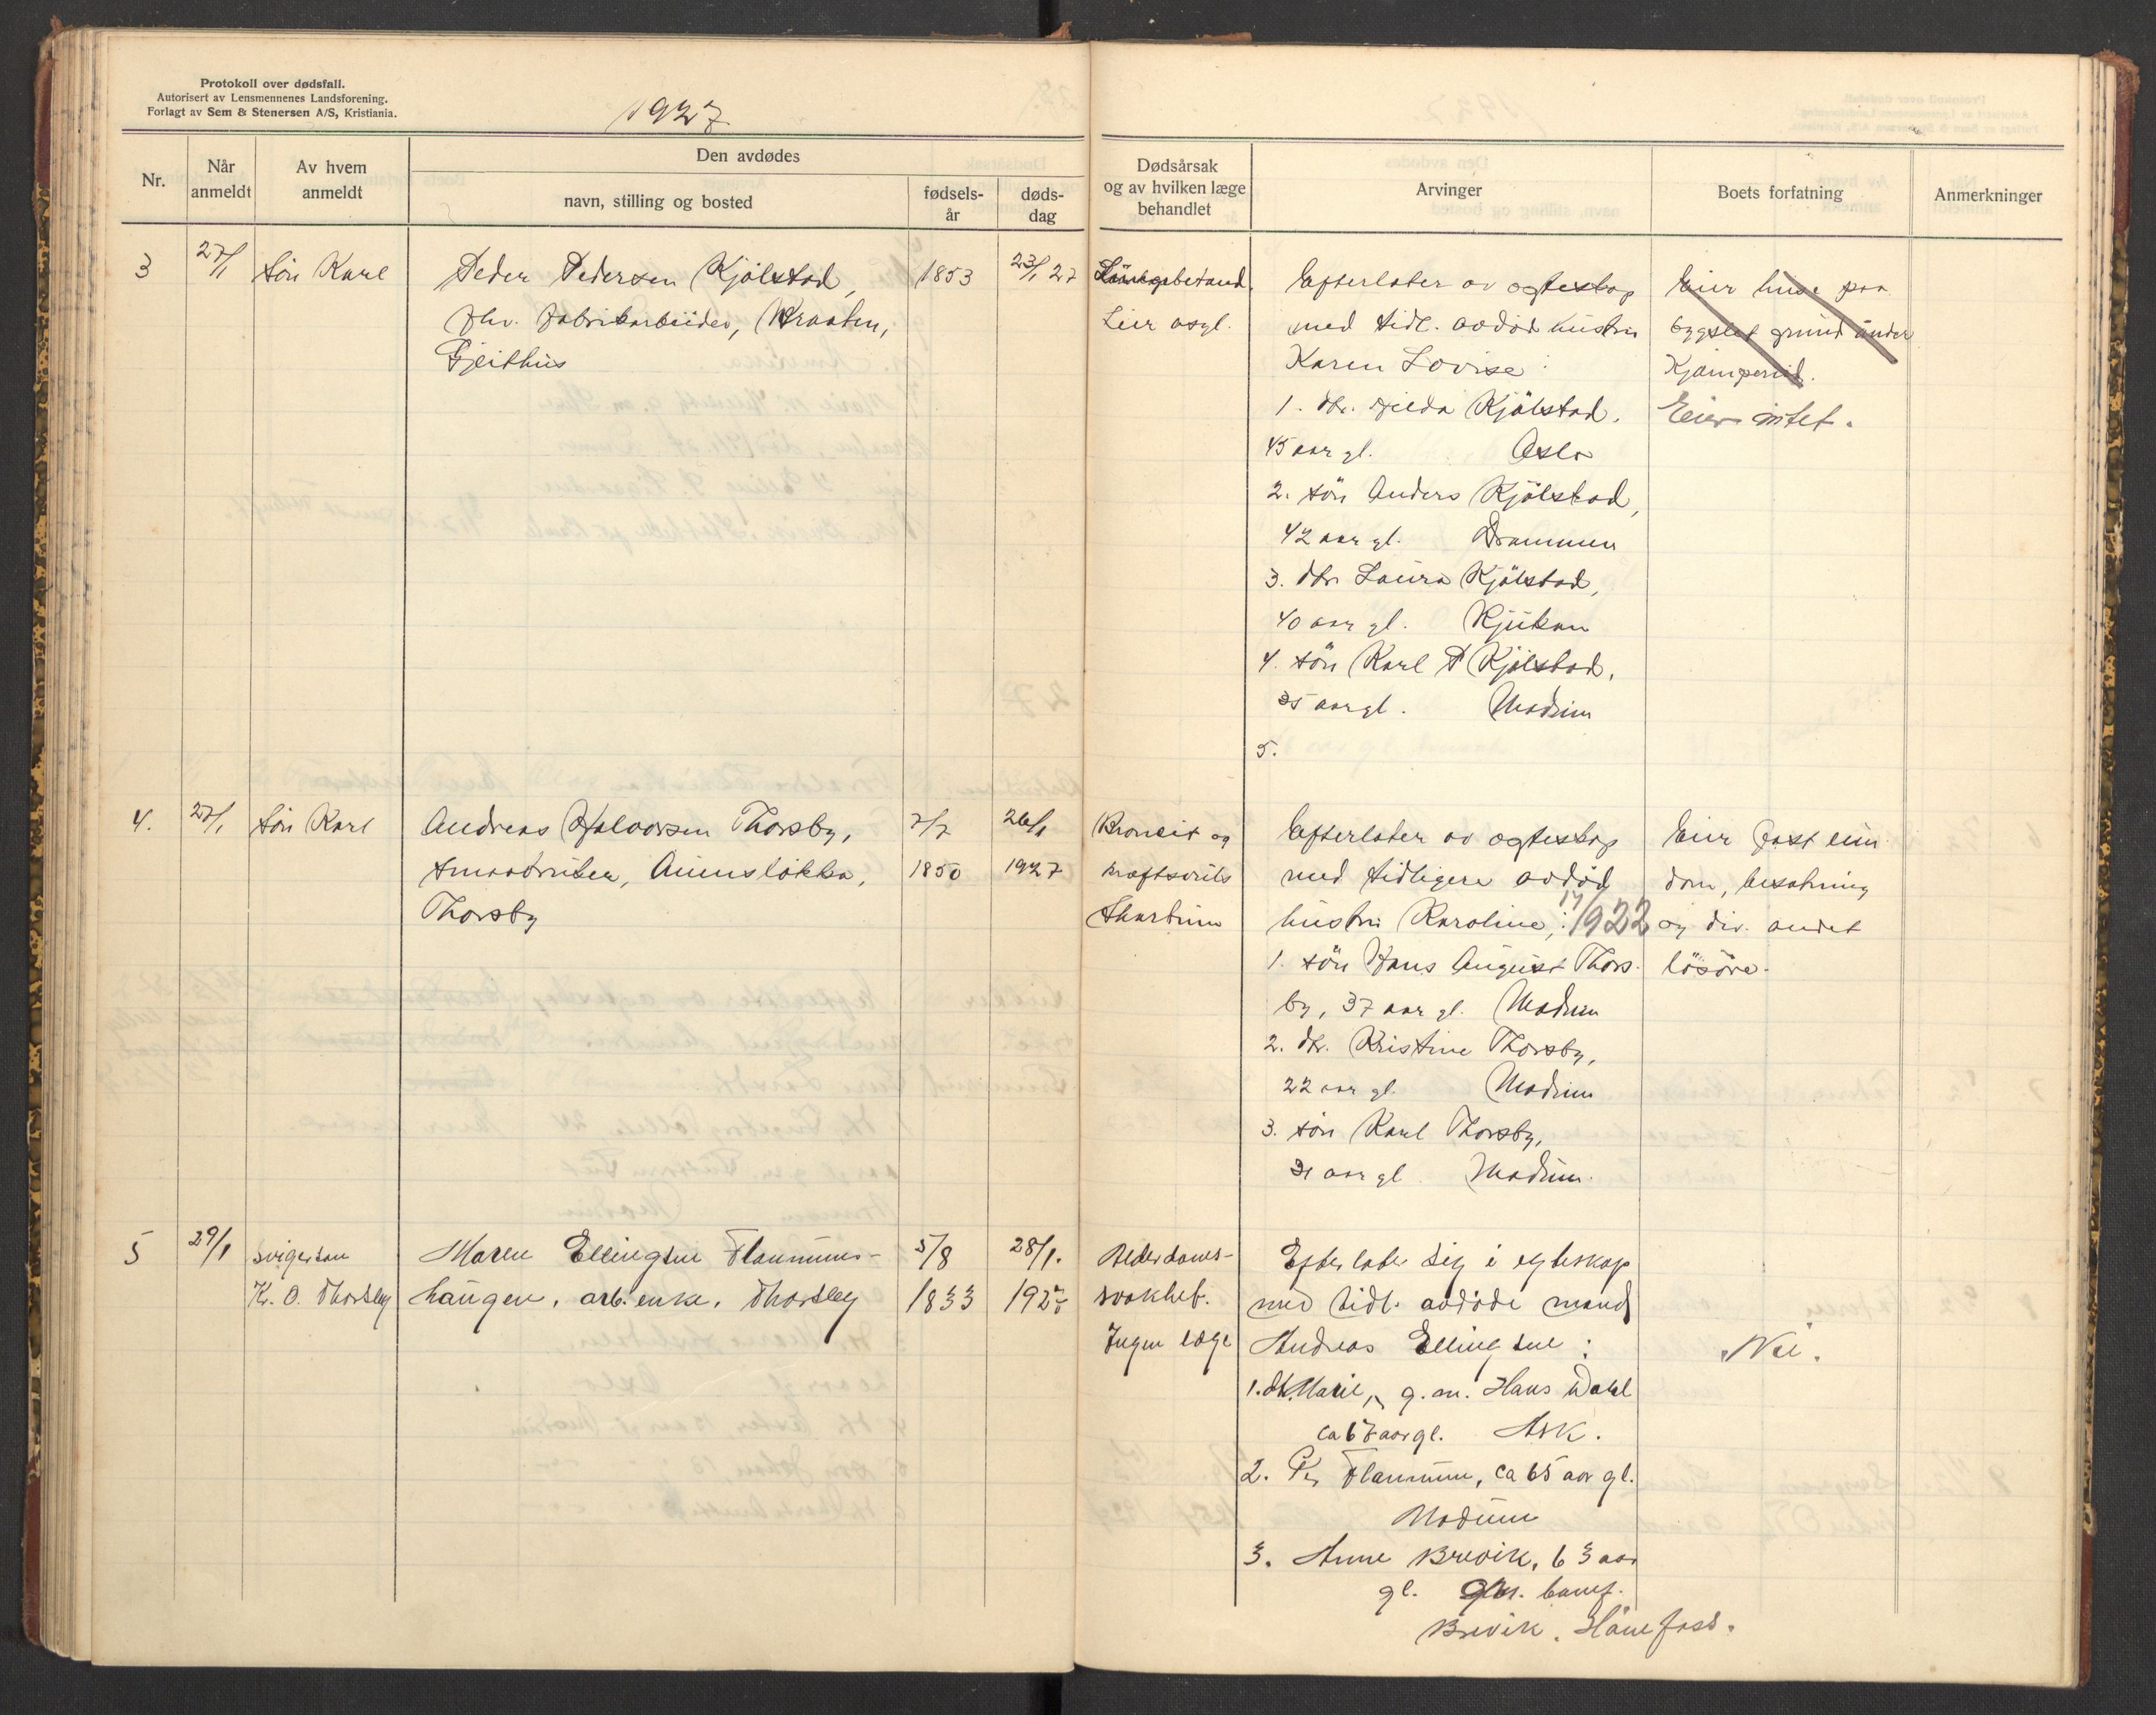 Protokoll over dødsfall.
Autorisert av Lensmennenes Landsforening.
Forlagt av Sem & Stenersen A/S, Kristiania.
1927
Nr.
Når anmeldt
Av hvem anmeldt
Den avdødes
navn, stilling og bosted
fødsels-år
døds-dag
Dødsårsak og av hvilken læge behandlet
Arvinger
Boets forfatning
Anmerkninger
3
27/1
Søn Karl
Peder Pedersen Kjølstad,
fhv. fabrikarbeider, Braaten,
Gjeithus
1853
23/1 27
Lungebetænd.
Leir asyl.
Efterlater av egteskap
med tidl. avdød hustru
Karen Lovise:
1. dtr. Hilda Kjølstad,
45 aar gl. Oslo
2. søn Anders Kjølstad,
42 aar gl. Drammen
3. dtr. Laura Kjølstad,
40 aar gl. Rjukan
4. søn Karl P Kjølstad,
35 aar gl. Modum
5.
Eier huse paa
bygslet grund under
Kjæmperud.
Eier intet.
4.
27/1
Søn Karl
Andreas Halvorsen Thorsby,
smaabruker, Aumsløkka,
Thorsby
7/7
1850
26/1
1927
Broncit og
kræftsvuls
Skartum
Efterlater av egteskap
med tidligere avdød
hustru Karoline, : 14/ 1922
1. søn Hans August Thors-
by, 37 aar gl. Modum
2. dtr. Kristine Thorsby,
22 aar gl. Modum
3. søn Karl Thorsby,
31 aar gl. Modum.
Eier fast eien
dom, besætning
og div. andet
løsøre.
5
29/1
svigersøn
K. O. Thorsby
Maren Ellingsen Flannums-
haugen, arb. enke, Thorsby
5/8
1833
28/1.
1927
Alderdoms-
svakhet.
Ingen læge
Efterlater sig i egteskap
med tidl. avdøde mand
Andreas Ellingsen:
1. dt. Marie, g. m. Hans Dahl
ca 67 aar gl. Ask.
2. Flannum, ca 65 aar gl.
Modum
3. Anne Brevik, 63 aar
gl. g.m.
Brevik. Hønefoss.
Nei.